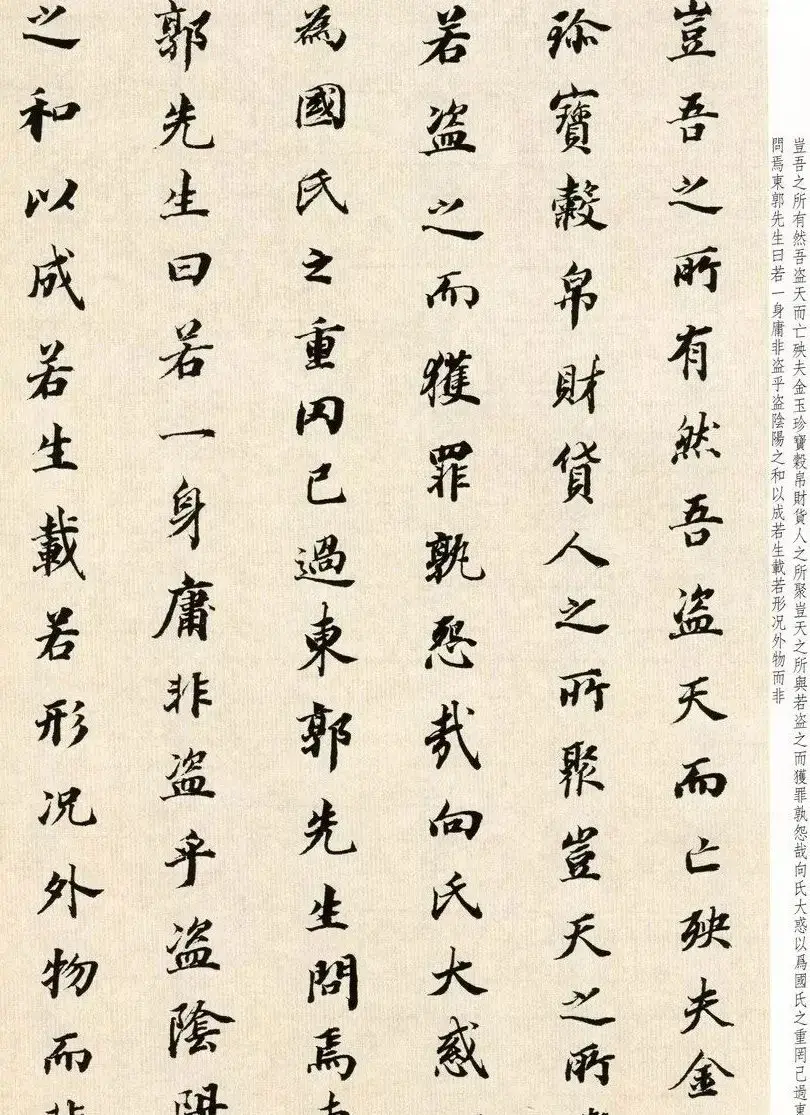 豈吾之所有然吾盜天而亡殃夫金玉珍寶穀帛財貨人之所聚豈天之所與若盜之而獲罪孰怨哉向氏大惑以爲國氏之重罔己過東
問焉東郭先生曰若一身庸非盜乎盜陰陽之和以成若生載若形况外物而非
豈吾之所有然吾盜天而亡殃夫金
珍寶穀帛財貨人之所聚豈天之所
若盜之而獲罪孰怨哉向氏大惑
為國氏之重罔已過東郭先生問焉東
郭先生曰若一身庸非盜乎盜陰陽
之和以成若生載若形况外物而非